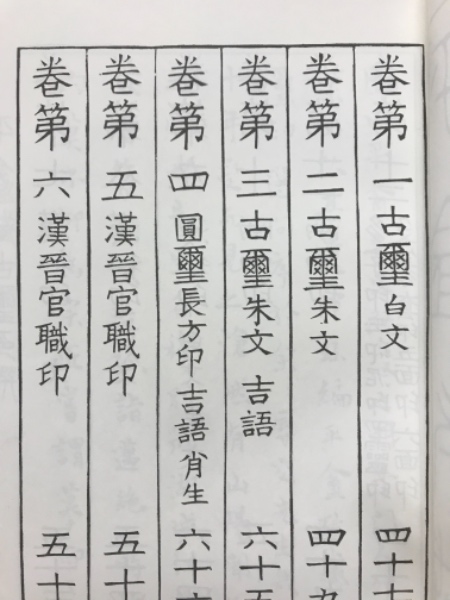 卷第一古璽白文 四十
卷第二古璽朱文 四十九
卷第三古璽朱文 吉語 六十五
卷第四圓璽長方印吉語肖生 六十
卷第五漢晉官職印 五十
卷第六漢晉官職印 五十